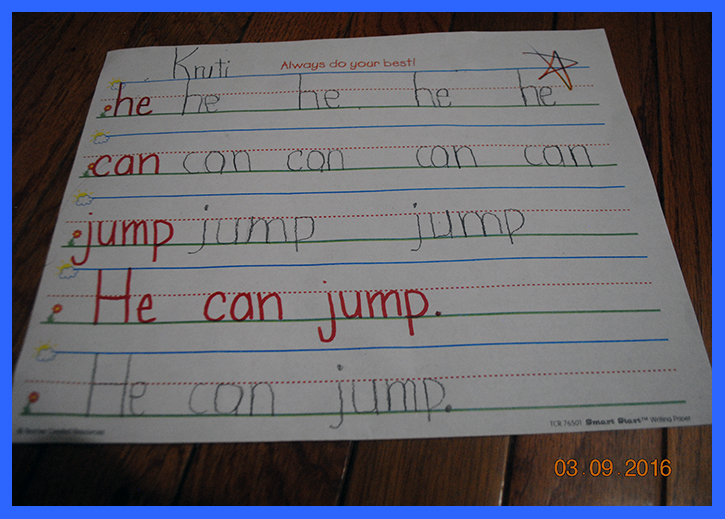 Kruti Always do your best!
he he he he he
can can can can can
jump jump jump
He can jump.
He can jump.
TCR 76501 Smart Start™ Writing Paper
03.09.2016